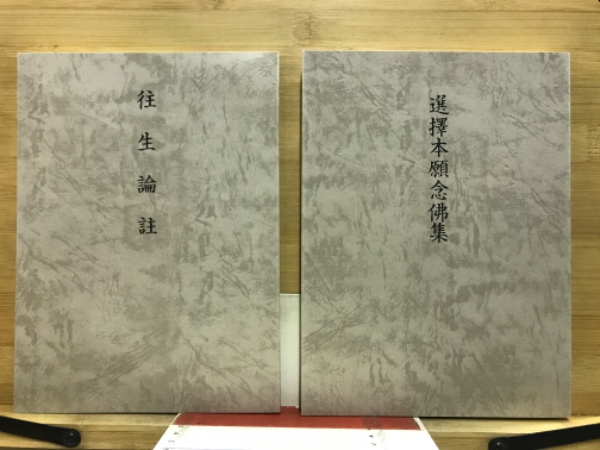 往生論註
選擇本願念佛集